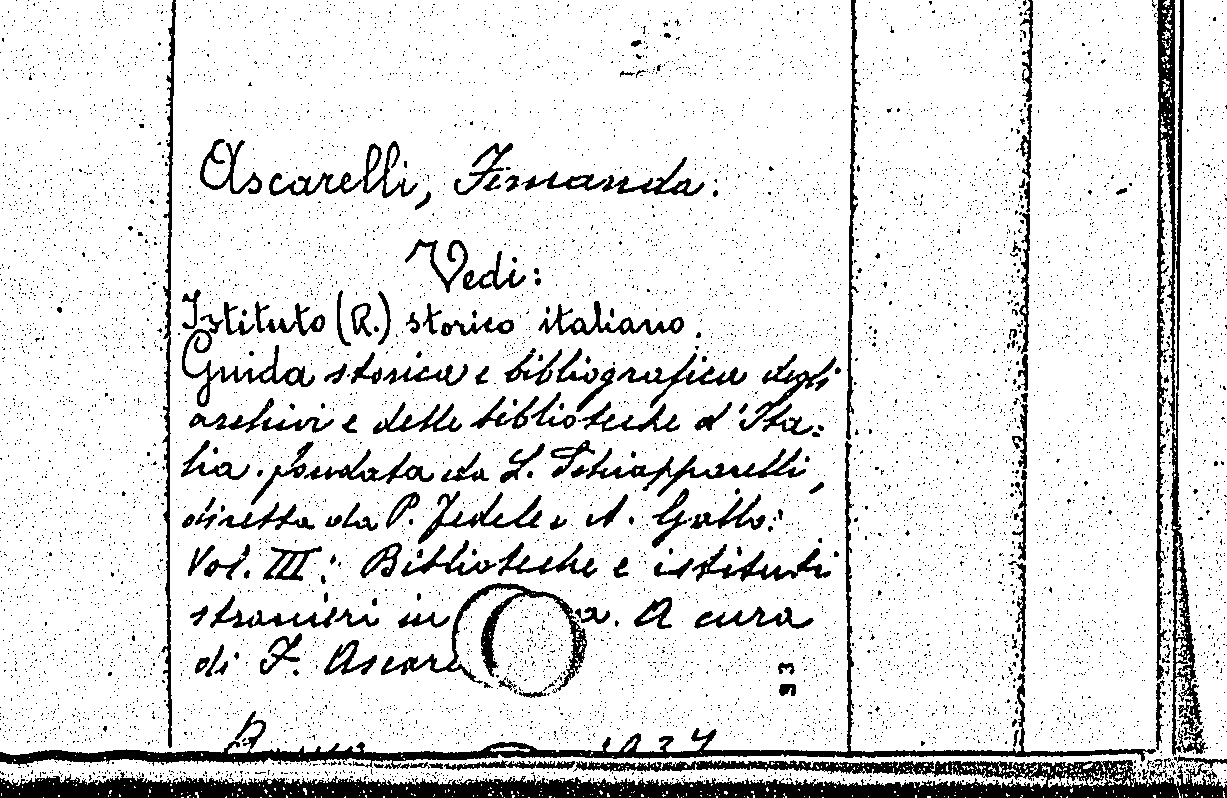 Ascarelli, Fernanda:
Vedi:
Istituto (R.) storico italiano.
Guida storica e bibliografica degli
archivi e delle biblioteche d'Ita:
lia. fondata da L. Schiapparelli,
diretta da P. Fedele e A. Gallo:
Vol. III: Biblioteche e istituti
stranieri in a. A cura
di F. Ascare
93